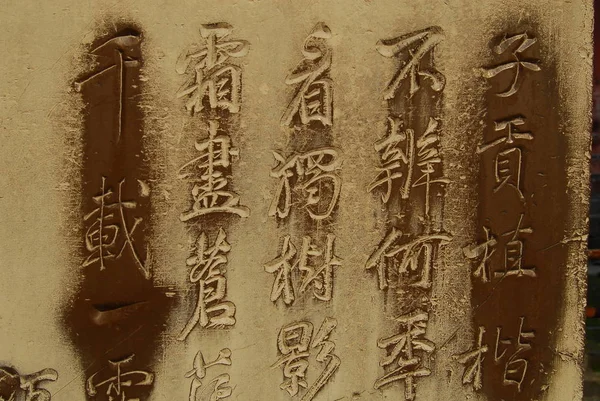 子貢植楷
不辨何秊
看獨樹影
霜盡蒼茫
千載一霑